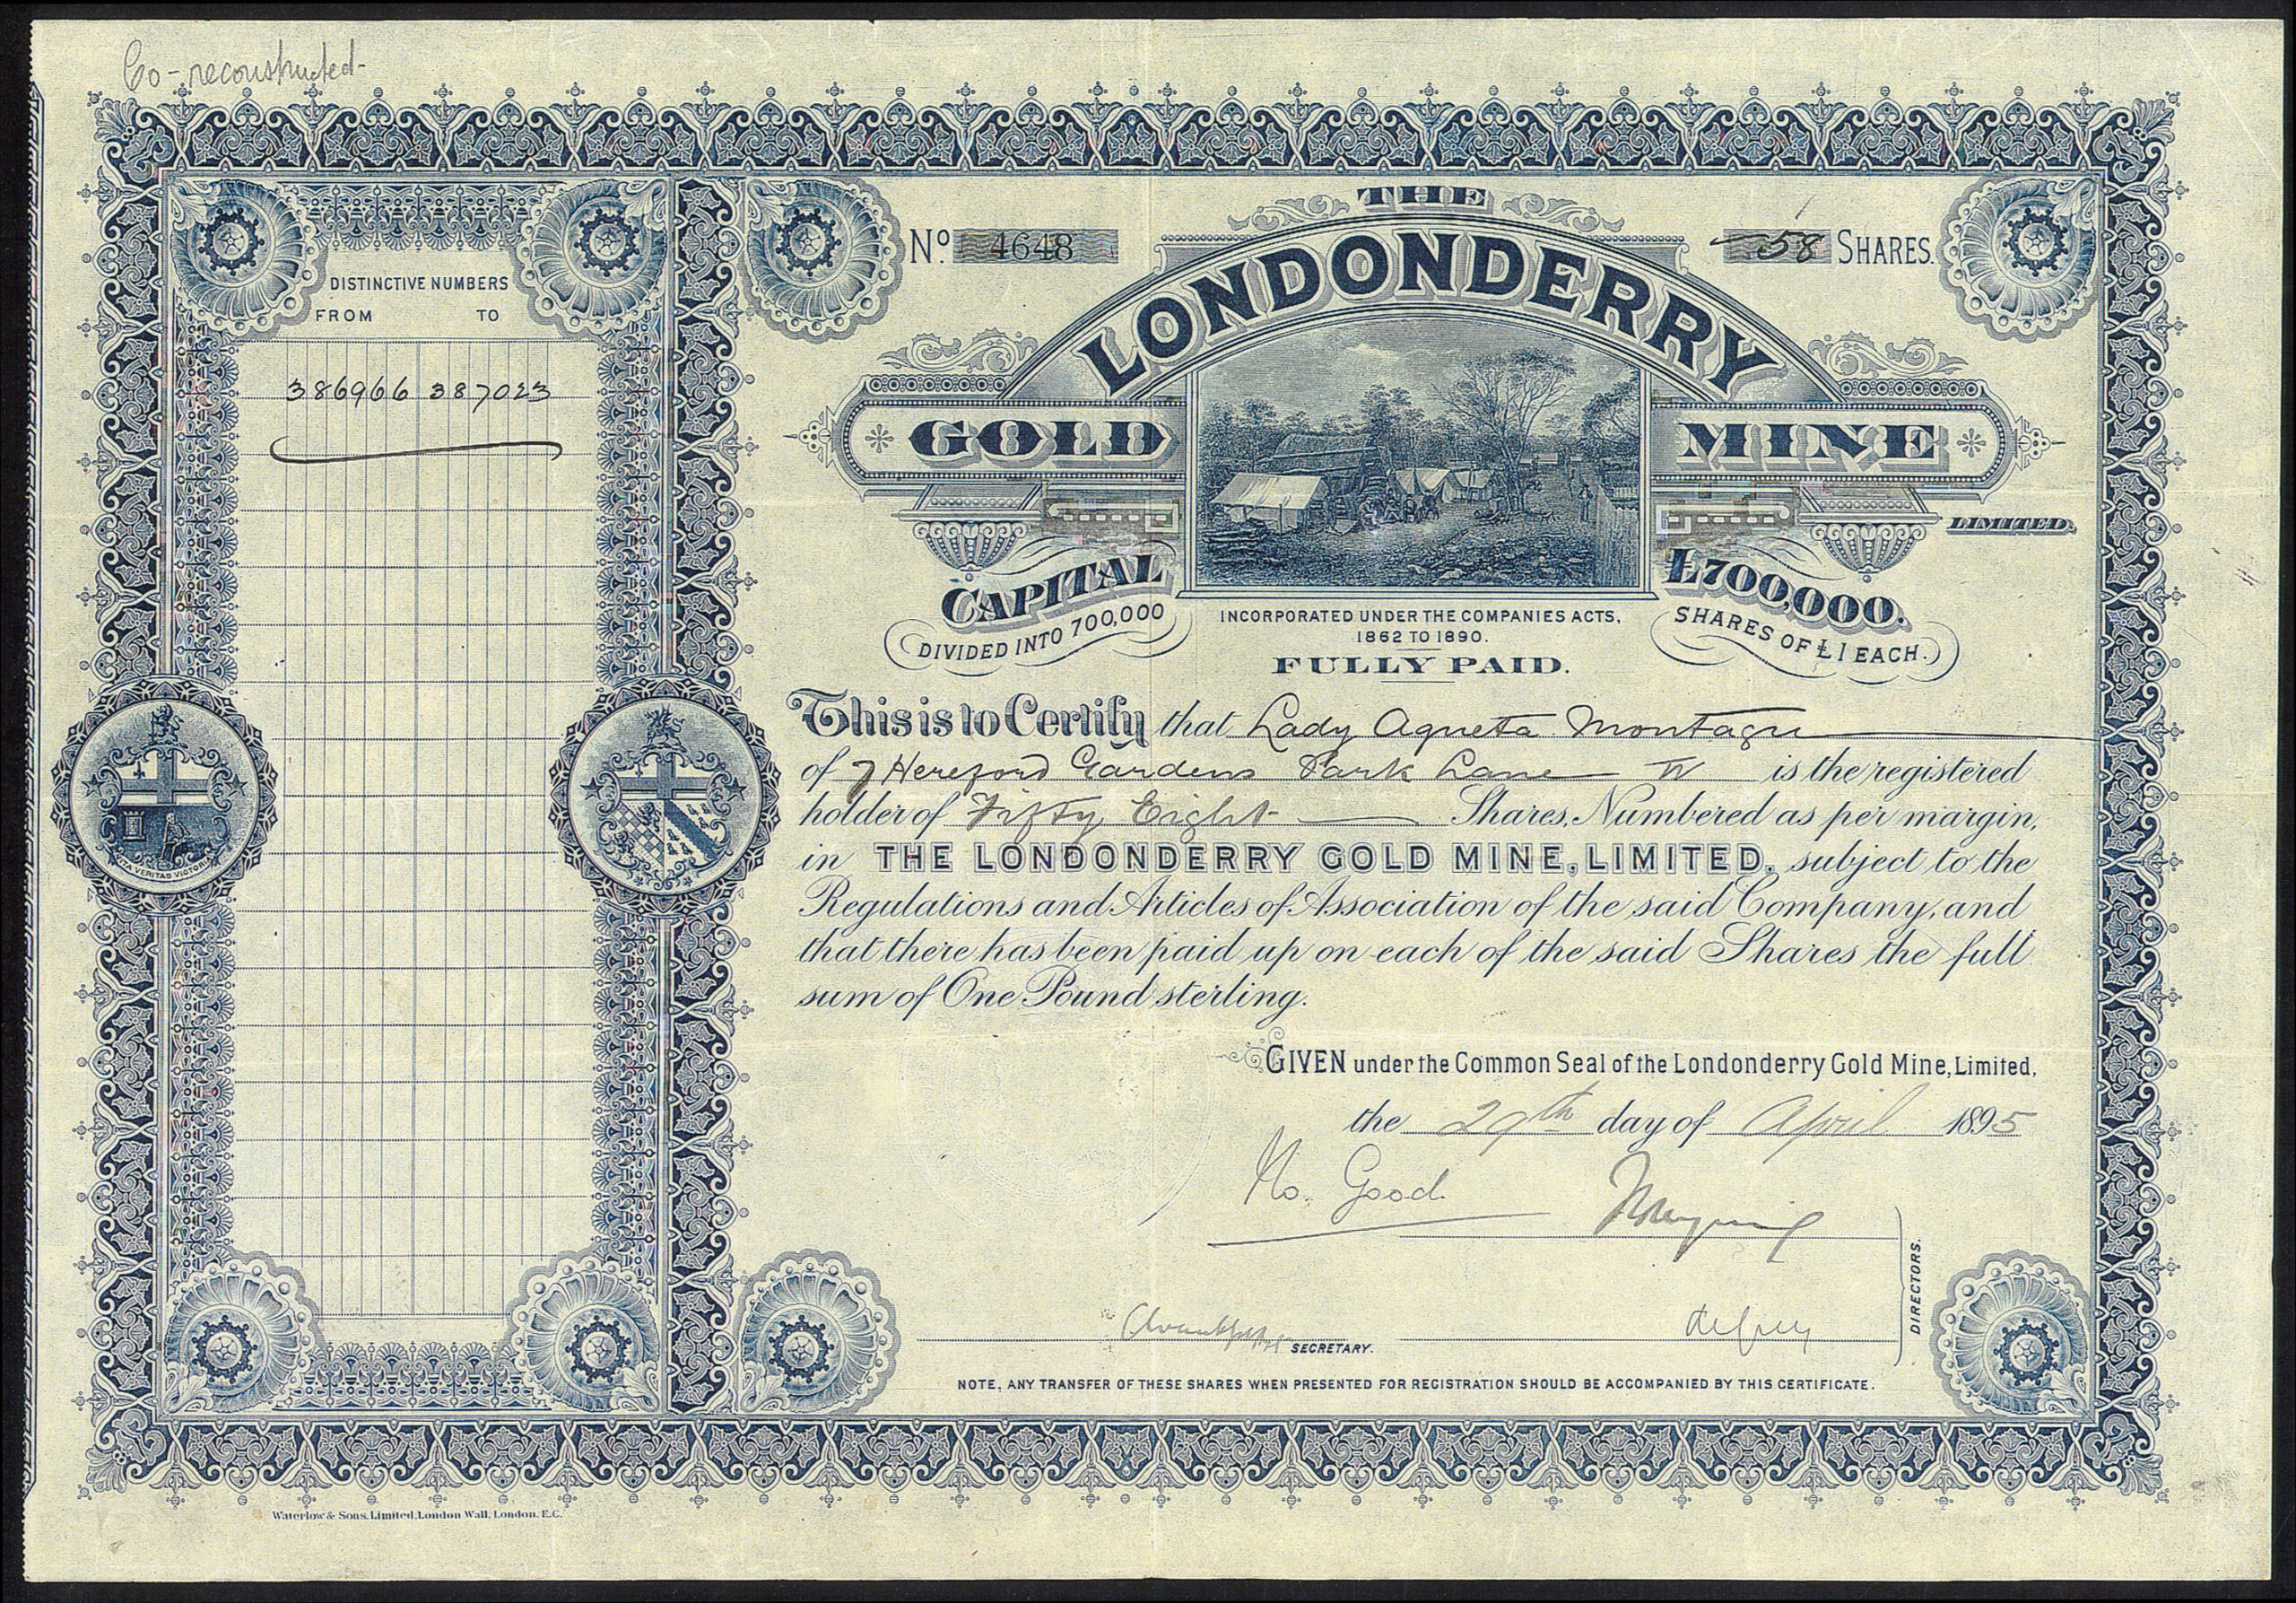 Co-reconstructed-
DISTINCTIVE NUMBERS
FROM TO
386966 387023
VITA VERITAS VICTORIA
No. 4648
58 SHARES.
THE
LONDONDERRY
GOLD MINE
LIMITED.
CAPITAL £700,000.
DIVIDED INTO 700,000 SHARES OF £1 EACH.
INCORPORATED UNDER THE COMPANIES ACTS,
1862 TO 1890.
FULLY PAID.
This is to Certify that Lady Agneta Montagu
of 7 Hereford Gardens Park Lane W is the registered
holder of Fifty Eight Shares, Numbered as per margin,
in THE LONDONDERRY GOLD MINE, LIMITED, subject to the
Regulations and Articles of Association of the said Company, and
that there has been paid up on each of the said Shares the full
sum of One Pound sterling.
GIVEN under the Common Seal of the Londonderry Gold Mine, Limited,
the 29th day of April 1895
No. Good
DIRECTORS.
SECRETARY.
NOTE, ANY TRANSFER OF THESE SHARES WHEN PRESENTED FOR REGISTRATION SHOULD BE ACCOMPANIED BY THIS CERTIFICATE.
Waterlow & Sons, Limited, London Wall, London. E.C.